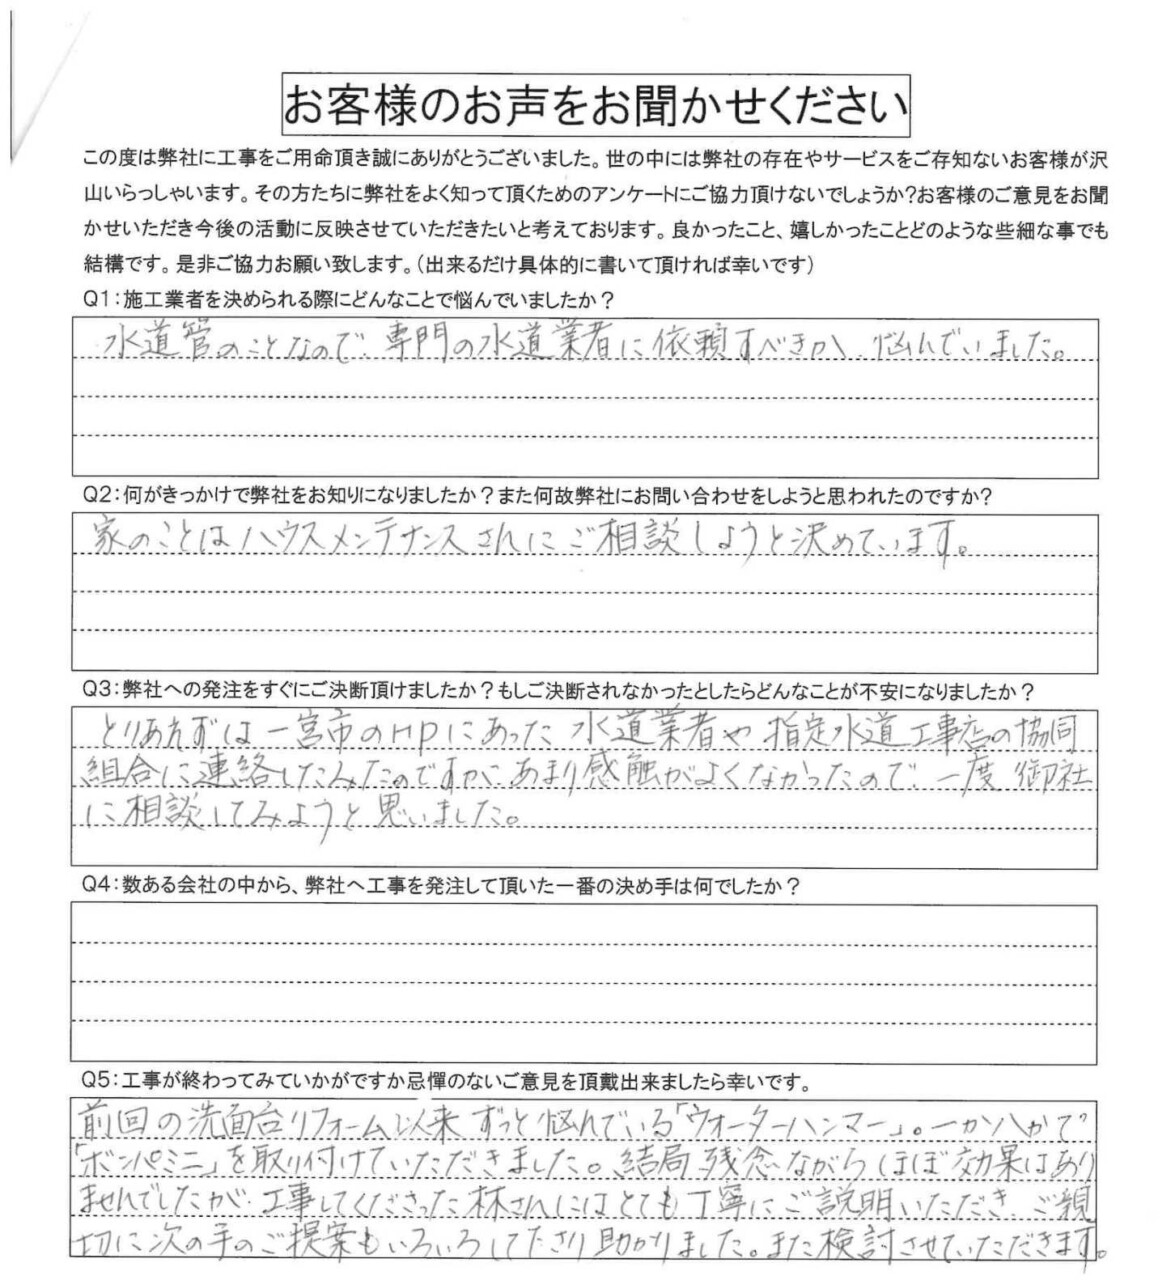 お客様のお声をお聞かせください
この度は弊社に工事をご用命頂き誠にありがとうございました。世の中には弊社の存在やサービスをご存知ないお客様が沢
山いらっしゃいます。その方たちに弊社をよく知って頂くためのアンケートにご協力頂けないでしょうか?お客様のご意見をお聞
かせいただき今後の活動に反映させていただきたいと考えております。良かったこと、嬉しかったことどのような些細な事でも
結構です。是非ご協力お願い致します。(出来るだけ具体的に書いて頂ければ幸いです)
Q1:施工業者を決められる際にどんなことで悩んでいましたか?
水道管のことなので、専門の水道業者に依頼すべきか、悩んでいました。
Q2:何がきっかけで弊社をお知りになりましたか?また何故弊社にお問い合わせをしようと思われたのですか?
家のことはハウスメンテナンスさんにご相談しようと決めています。
Q3:弊社への発注をすぐにご決断頂けましたか?もしご決断されなかったとしたらどんなことが不安になりましたか?
とりあえずは一宮市のHPにあった水道業者や指定水道工事店の協同
組合に連絡したみたのですが、あまり感触がよくなかったので、一度御社
に相談してみようと思いました。
Q4:数ある会社の中から、弊社へ工事を発注して頂いた一番の決め手は何でしたか?
Q5:工事が終わってみていかがですか忌憚のないご意見を頂戴出来ましたら幸いです。
前回の洗面台リフォーム以来ずっと悩んでいる「ウォーターハンマー」。一か八かで
「ボンパミニ」を取り付けていただきました。結局残念ながらほぼ効果はあり
ませんでしたが、工事してくださった林さんにはとても丁寧にご説明いただき、ご親
切に次の手のご提案もいろいろして下さり助かりました。また検討させていただきます。